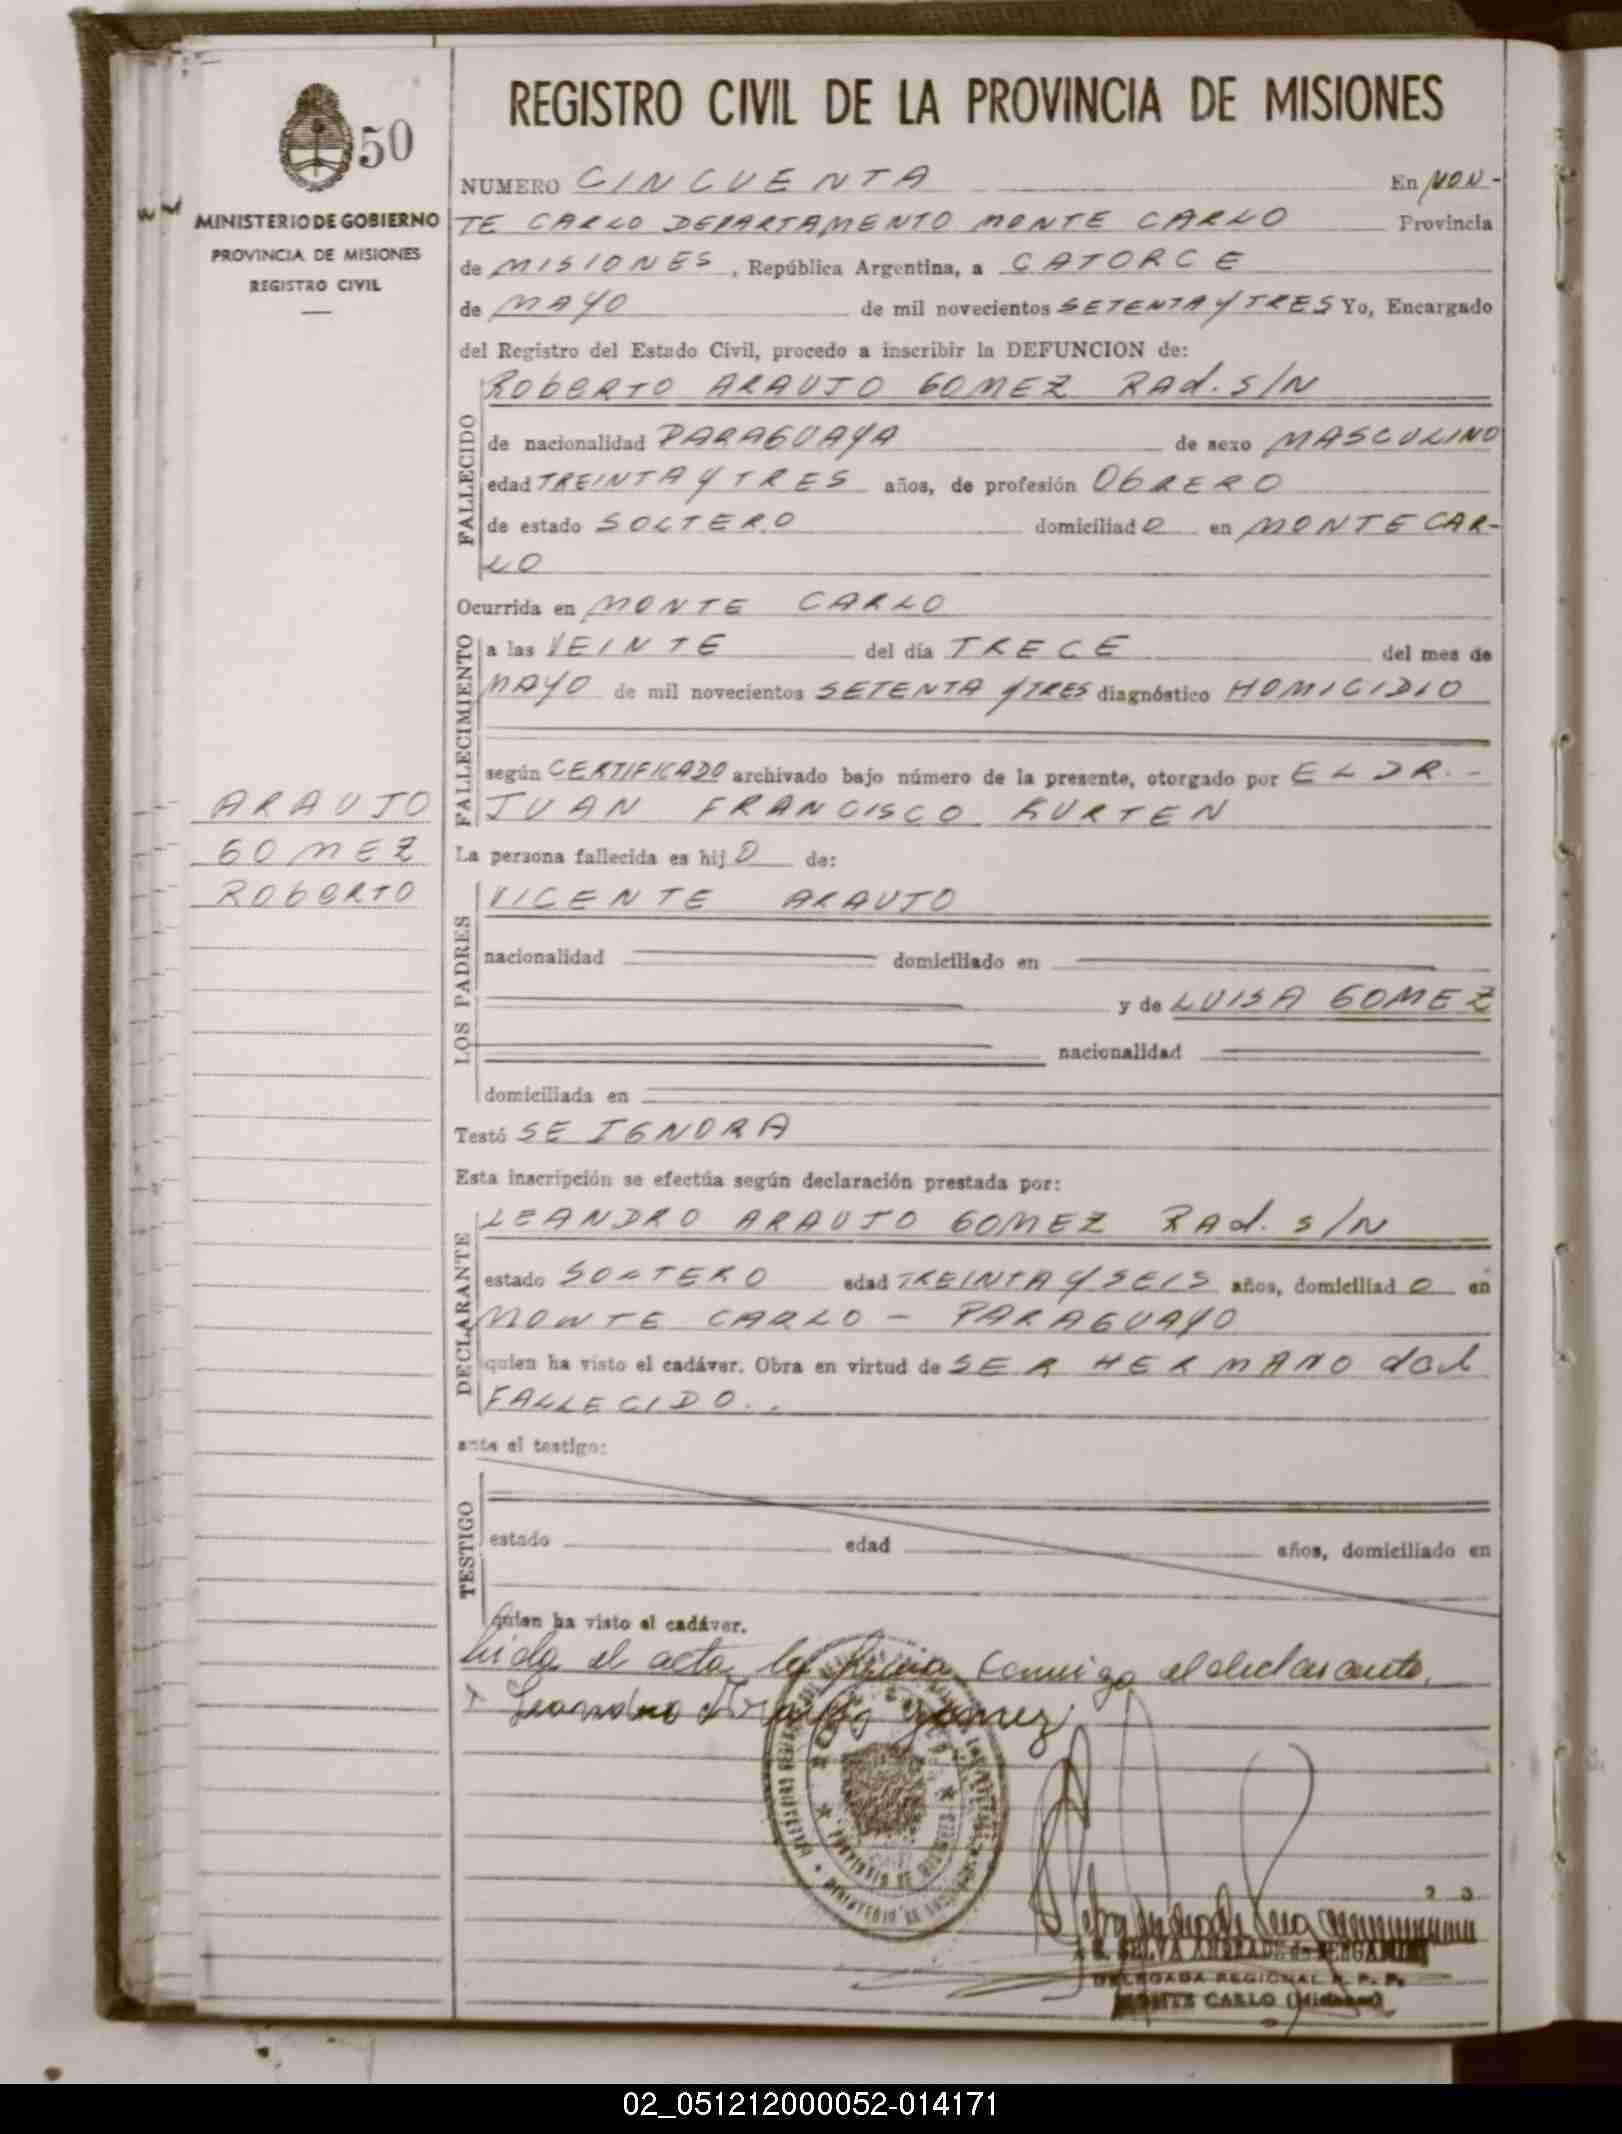 REGISTRO CIVIL DE LA PROVINCIA DE MISIONES
50
MINISTERIO DE GOBIERNO
PROVINCIA DE MISIONES
REGISTRO CIVIL
NUMERO CINCUENTA En MON-
TE CARLO DEPARTAMENTO MONTE CARLO Provincia
de MISIONES, República Argentina, a CATORCE
de MAYO de mil novecientos SETENTA Y TRES Yo, Encargado
del Registro del Estado Civil, procedo a inscribir la DEFUNCION de:
FALLECIDO
ROBERTO ARAUJO GOMEZ RAd. S/N
de nacionalidad PARAGUAYA de sexo MASCULINO
edad TREINTA Y TRES años, de profesión OBRERO
de estado SOLTERO domiciliado en MONTE CAR-
LO
Ocurrida en MONTE CARLO
FALLECIMIENTO
a las VEINTE del día TRECE del mes de
MAYO de mil novecientos SETENTA Y TRES diagnóstico HOMICIDIO
según CERTIFICADO archivado bajo número de la presente, otorgado por EL DR.-
JUAN FRANCISCO KURTEN
ARAUJO
GOMEZ
ROBERTO
La persona fallecida es hijo de:
LOS PADRES
VICENTE ARAUJO
nacionalidad domiciliado en
y de LUISA GOMEZ
nacionalidad
domiciliada en
Testó SE IGNORA
Esta inscripción se efectúa según declaración prestada por:
DECLARANTE
LEANDRO ARAUJO GOMEZ RAd. S/N
estado SOLTERO edad TREINTA Y SEIS años, domiciliado en
MONTE CARLO - PARAGUAYO
quien ha visto el cadáver. Obra en virtud de SER HERMANO del
FALLECIDO..
ante el testigo:
TESTIGO
estado edad años, domiciliado en
quien ha visto el cadáver.
Leida el acta, la firma conmigo el declarante.
Leandro Araujo Gomez
PROVINCIA DE MISIONES
SELVA ANDRADE de
DELEGADA REGIONAL R. P. P.
MONTE CARLO (Misiones)
02_051212000052-014171